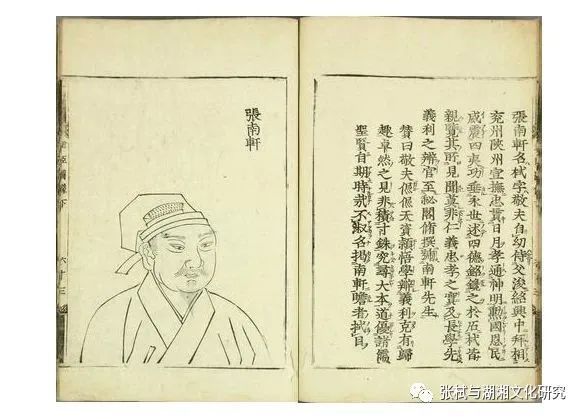 張南軒名栻字敬夫自幼侍父浚紹興中拜相
兗州陝州宣撫忠貫日月孝通神明勲國恩民
威震四夷功垂永世述四德銘鏡之於石栻皆
親覽其所見聞莫非仁義忠孝之實及長學先
義利之辨官至祕閣脩撰號南軒先生
贊曰敬夫偲偲天資穎悟學辨義利克有歸
趣卓然之見非積寸銖究尋大本道優諸儒
聖賢自期時哉不淑名揭南軒瞻者拭目
張南軒
六十三
张栻与湖湘文化研究